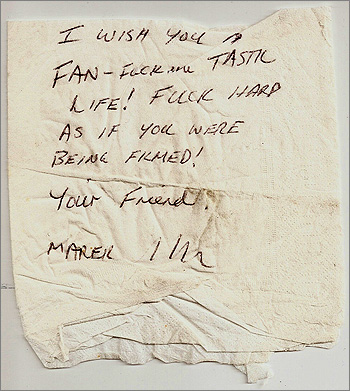 I WISH YOU A
FAN-FUCKING TASTIC
LIFE! FUCK HARD
AS IF YOU WERE
BEING FILMED!
Your Friend,
MAREK